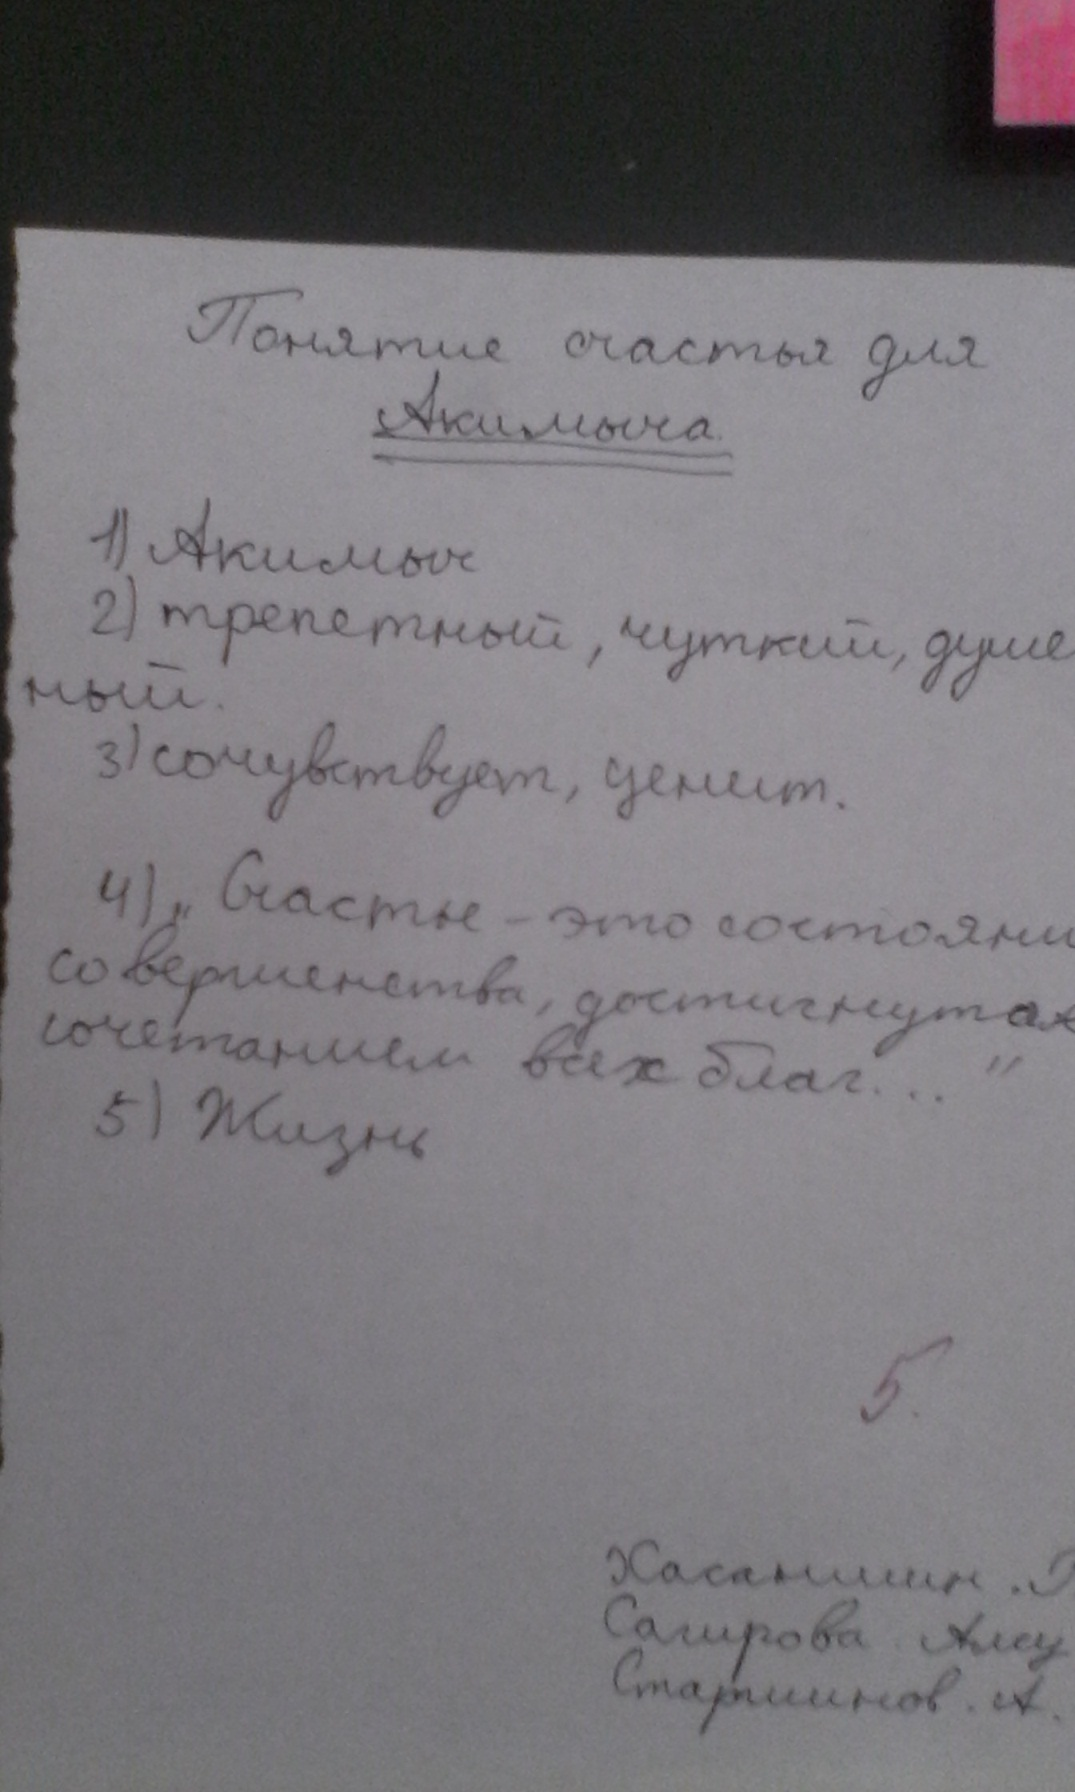 Понятие счастья для
Акимыча.
1) Акимыч
2) трепетный, чуткий, душе
ный.
3) сочувствует, ценит.
4) „Счастье - это состояни
совершенства, достигнутая
сочетанием всех благ..."
5) Жизнь
5.
Хасаншин. Г
Сагирова Алсу
Старшинов. А.